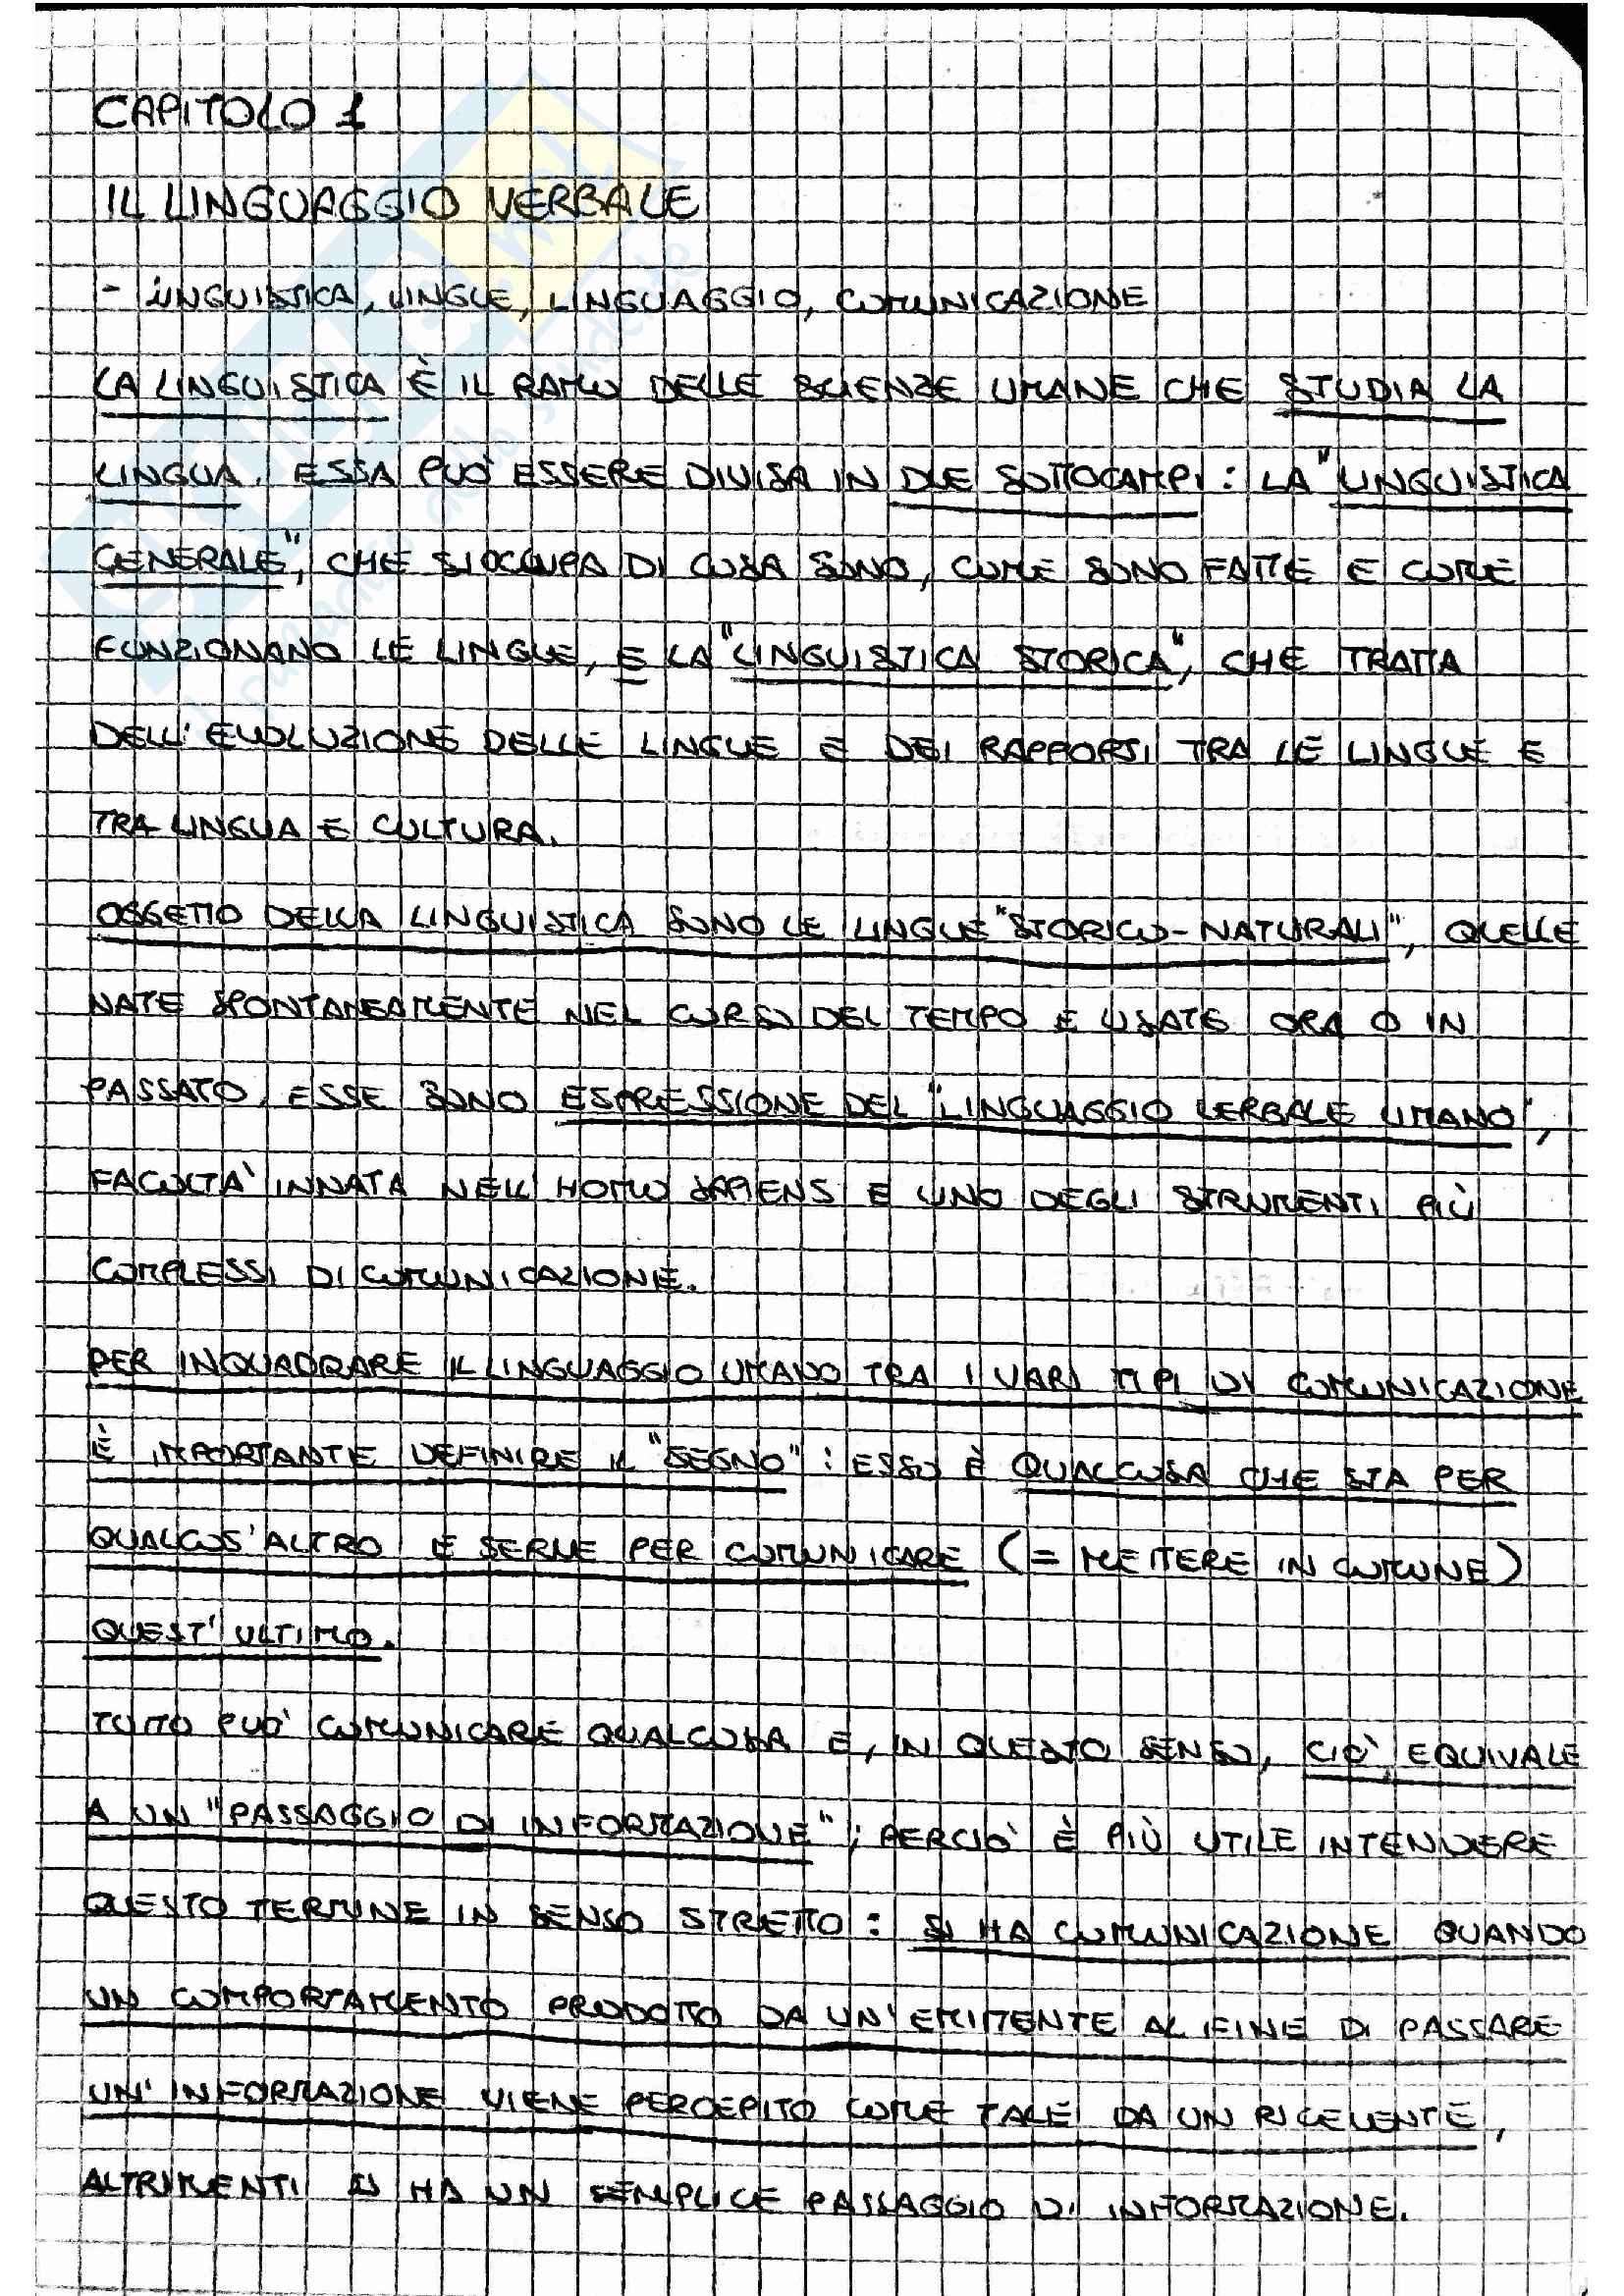 CAPITOLO 1
IL LINGUAGGIO VERBALE
- LINGUISTICA, LINGUE, LINGUAGGIO, COMUNICAZIONE
LA LINGUISTICA È IL RAMO DELLE SCIENZE UMANE CHE STUDIA LA
LINGUA. ESSA PUÒ ESSERE DIVISA IN DUE SOTTOCAMPI: LA "LINGUISTICA
GENERALE", CHE SI OCCUPA DI COSA SONO, COME SONO FATTE E COME
FUNZIONANO LE LINGUE, E LA "LINGUISTICA STORICA", CHE TRATTA
DELL'EVOLUZIONE DELLE LINGUE E DEI RAPPORTI TRA LE LINGUE E
TRA LINGUA E CULTURA.
OGGETTO DELLA LINGUISTICA SONO LE LINGUE "STORICO-NATURALI", QUELLE
NATE SPONTANEAMENTE NEL CORSO DEL TEMPO E USATE ORA O IN
PASSATO. ESSE SONO ESPRESSIONE DEL "LINGUAGGIO VERBALE UMANO",
FACOLTA' INNATA NELL'HOMO SAPIENS E UNO DEGLI STRUMENTI PIÙ
COMPLESSI DI COMUNICAZIONE.
PER INQUADRARE IL LINGUAGGIO UMANO TRA I VARI TIPI DI COMUNICAZIONE
È IMPORTANTE DEFINIRE IL "SEGNO": ESSO È QUALCOSA CHE STA PER
QUALCOS'ALTRO E SERVE PER COMUNICARE (= METTERE IN COMUNE)
QUEST'ULTIMO.
TUTTO PUO' COMUNICARE QUALCOSA E, IN QUESTO SENSO, CIO' EQUIVALE
A UN "PASSAGGIO DI INFORMAZIONE"; PERCIO' È PIÙ UTILE INTENDERE
QUESTO TERMINE IN SENSO STRETTO: SI HA COMUNICAZIONE QUANDO
UN COMPORTAMENTO PRODOTTO DA UN'EMITTENTE AL FINE DI PASSARE
UN'INFORMAZIONE VIENE PERCEPITO COME TALE DA UN RICEVENTE,
ALTRIMENTI SI HA UN SEMPLICE PASSAGGIO DI INFORMAZIONE.